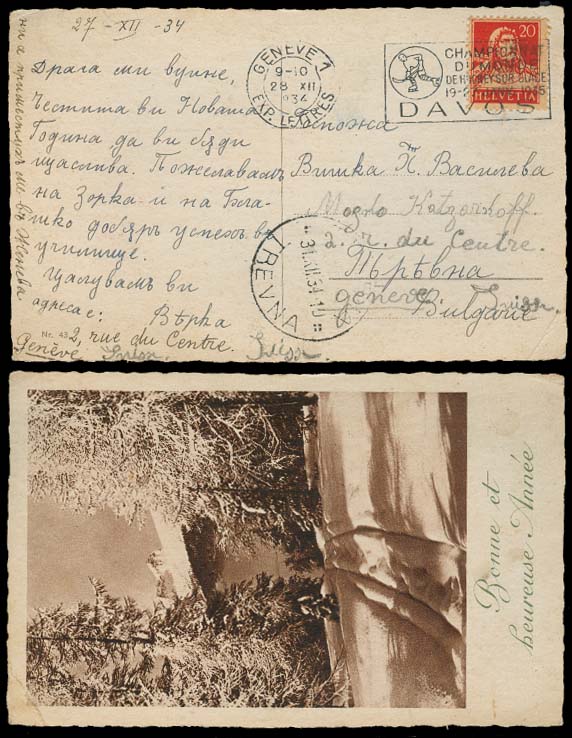 27 - XII - 34
Драга ми вуйне,
Честита ви Новата
Година да ви бѫди
щастлива. Пожелавамъ
на Зорка и на Бла-
добъръ успехъ въ
училище.
Цалувамъ ви
Вѣрка
адреса е:
Nr. 43 2, rue du Centre.
Genève Suisse.
Suisse.
ми въ Женева
GENÈVE 1
9-10
28 XII
1934
EXP. LETTRES
CHAMPIONNAT
DU MONDE
DE HOCKEY SUR GLACE
19-2 1935
DAVOS
20
HELVETIA
Госпожа
П. Василева
2. r. du Centre.
Трѣвна
genève Suisse.
Bulgarie
TREVNA
31.XII.34-10
Bonne et
heureuse Année